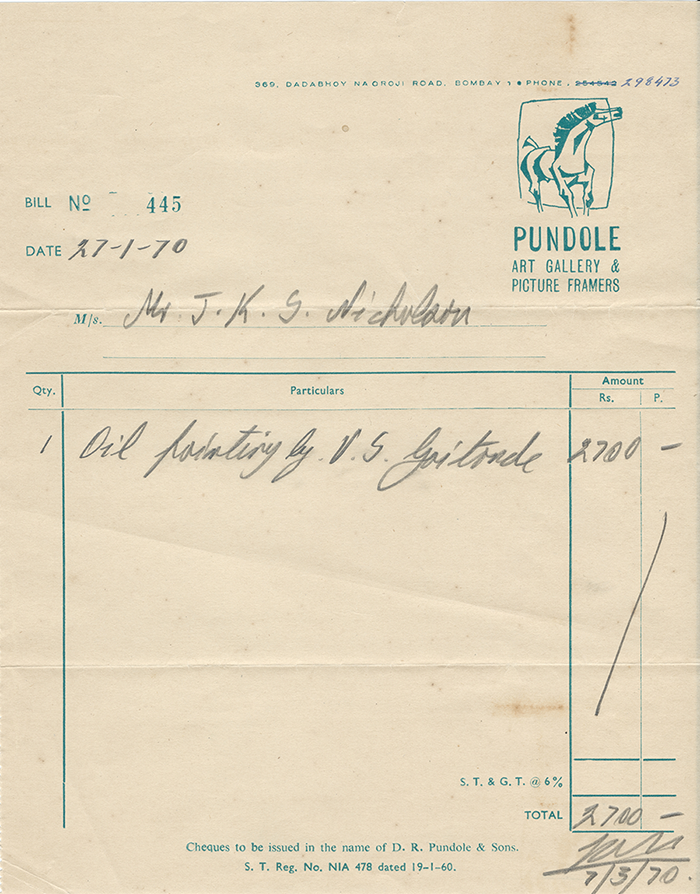 369, DADABHOY NAOROJI ROAD, BOMBAY 1 • PHONE. 254542 298473
BILL Nº 445
DATE 27-1-70
PUNDOLE
ART GALLERY &
PICTURE FRAMERS
M/s. Mr J. K. S. Nicholson
Qty. Particulars Amount
Rs. P.
1 Oil painting by V. S. Gaitonde 2700 –
S. T. & G. T. @ 6%
TOTAL 2700 –
Cheques to be issued in the name of D. R. Pundole & Sons.
S. T. Reg. No. NIA 478 dated 19-1-60.
7/3/70.